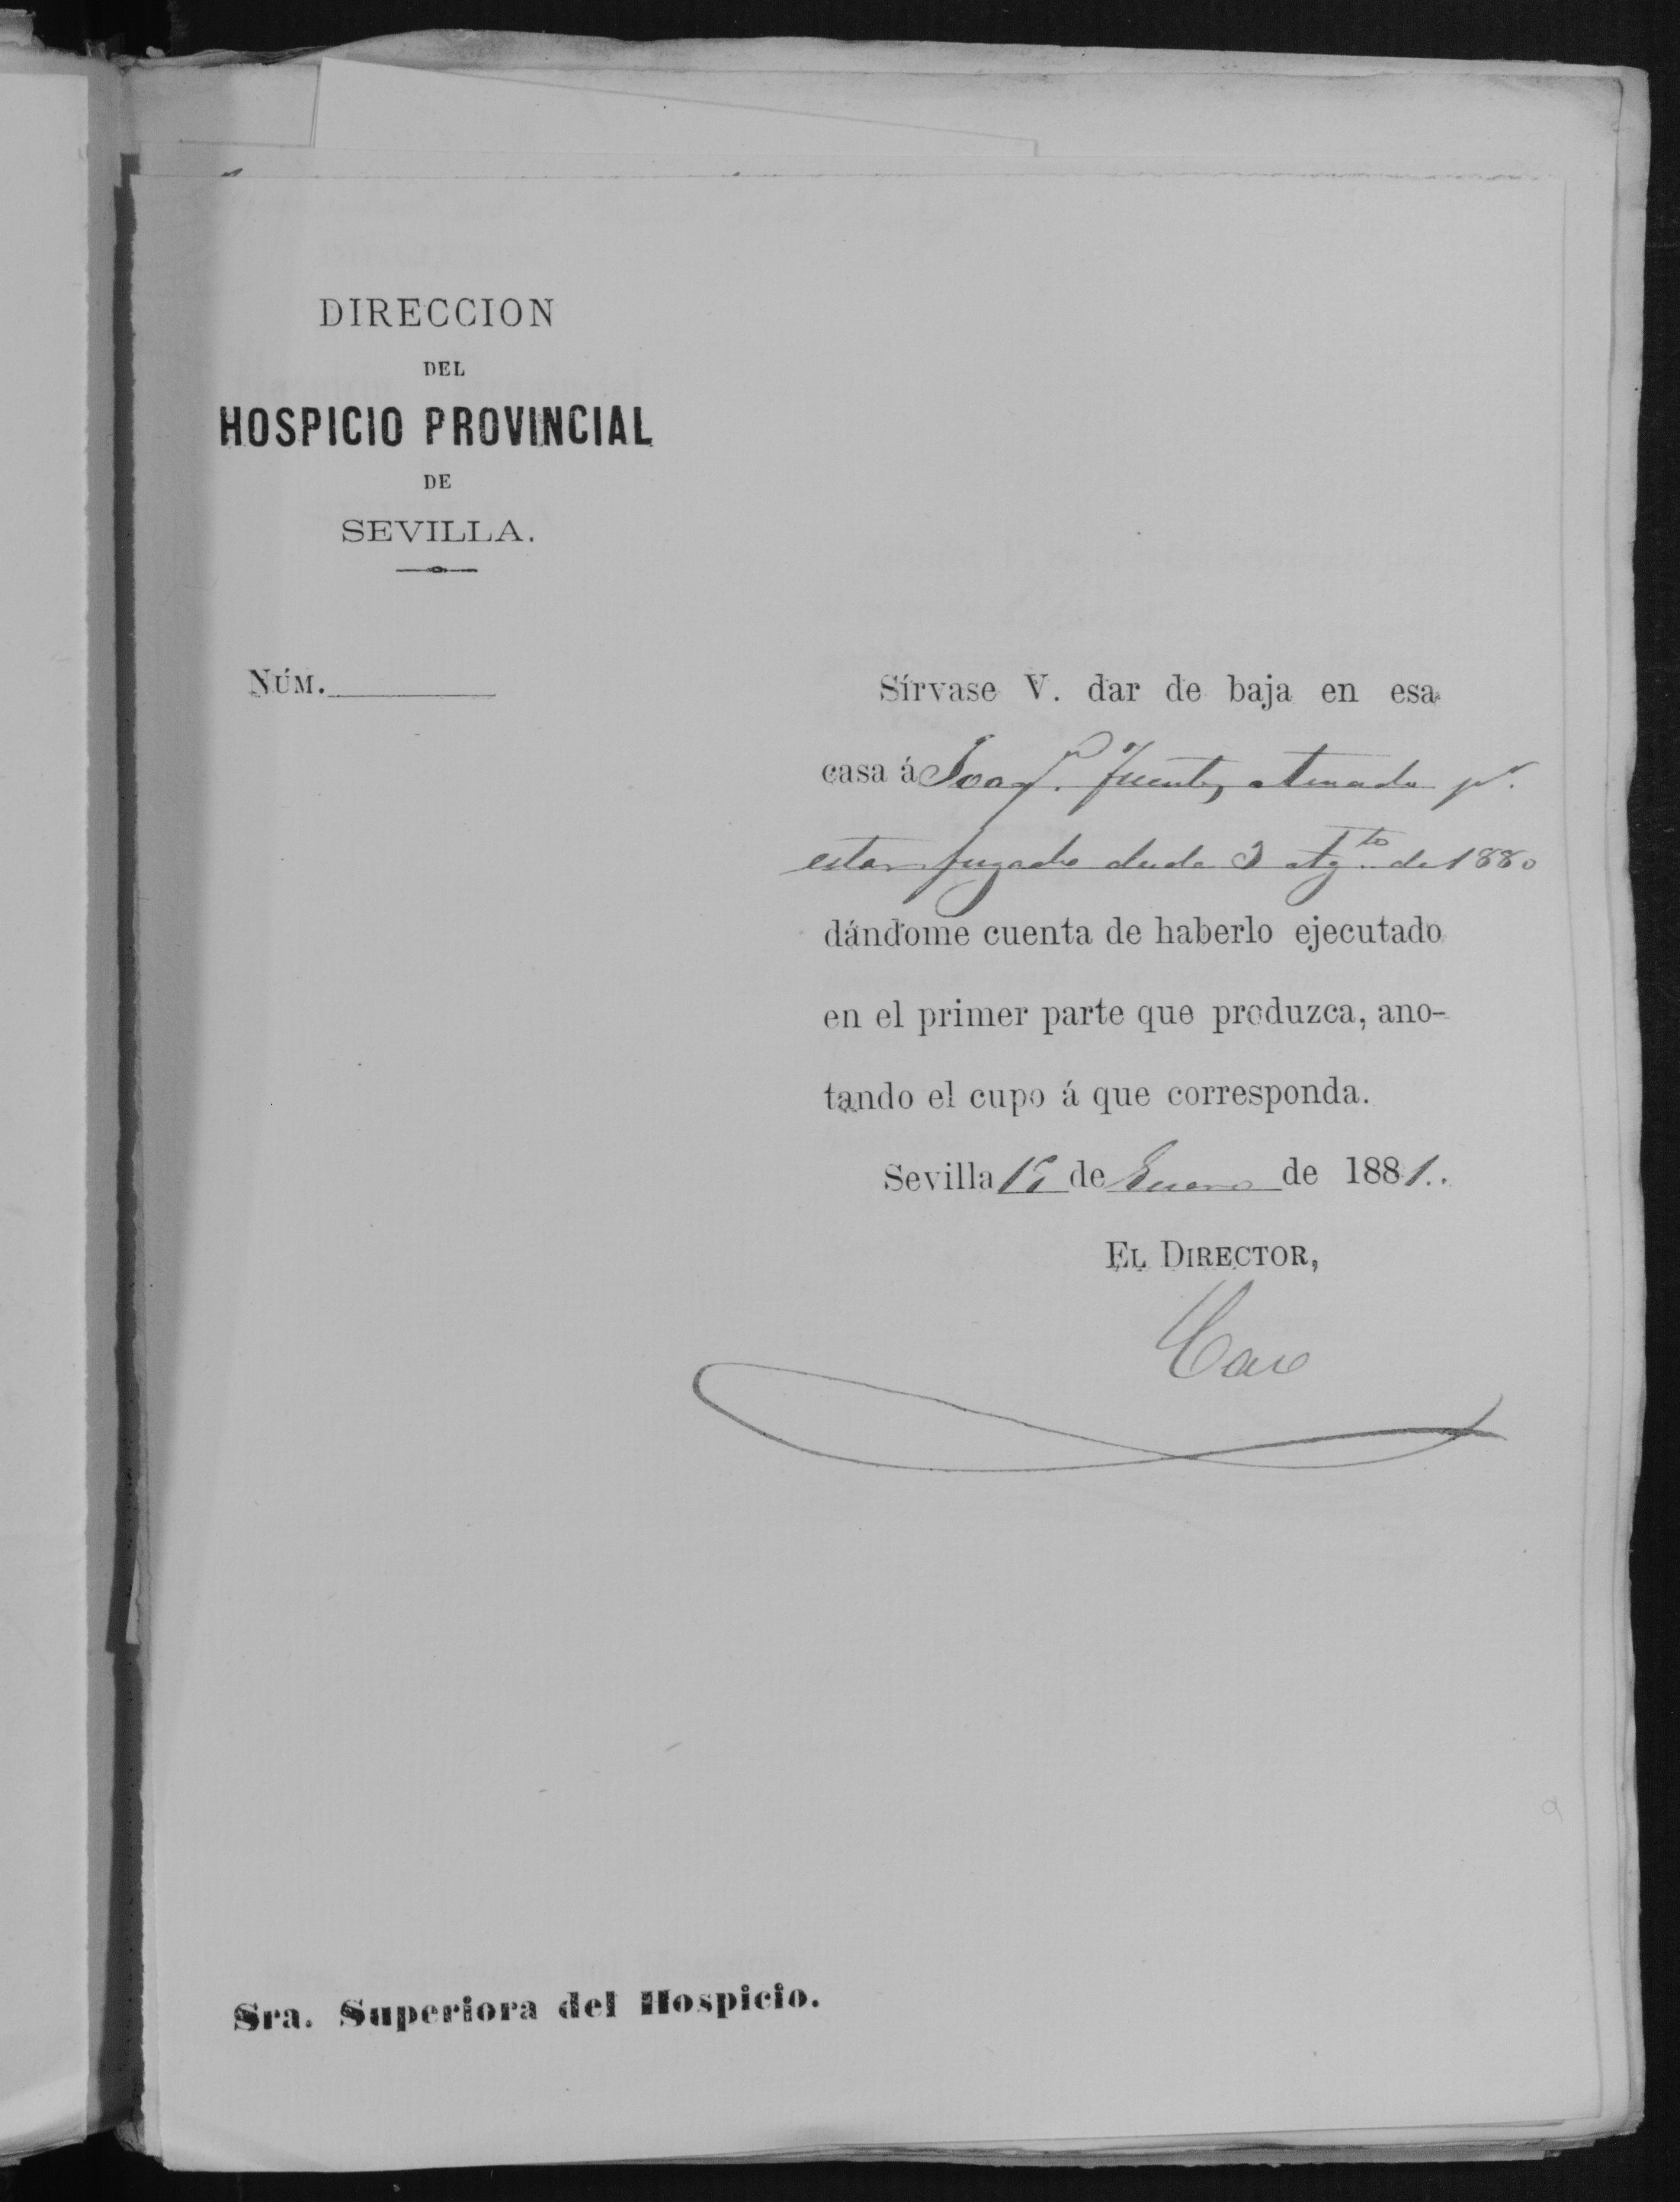 DIRECCION
DEL
HOSPICIO PROVINCIAL
DE
SEVILLA.
NÚM.
Sírvase V. dar de baja en esa
casa á Joaqn. Fuentes pr.
estar fugado desde 3 Agto. de 1880
dándome cuenta de haberlo ejecutado
en el primer parte que produzca, ano-
tando el cupo á que corresponda.
Sevilla de Enero de 1881.
EL DIRECTOR,
Caro
Sra. Superiora del Hospicio.